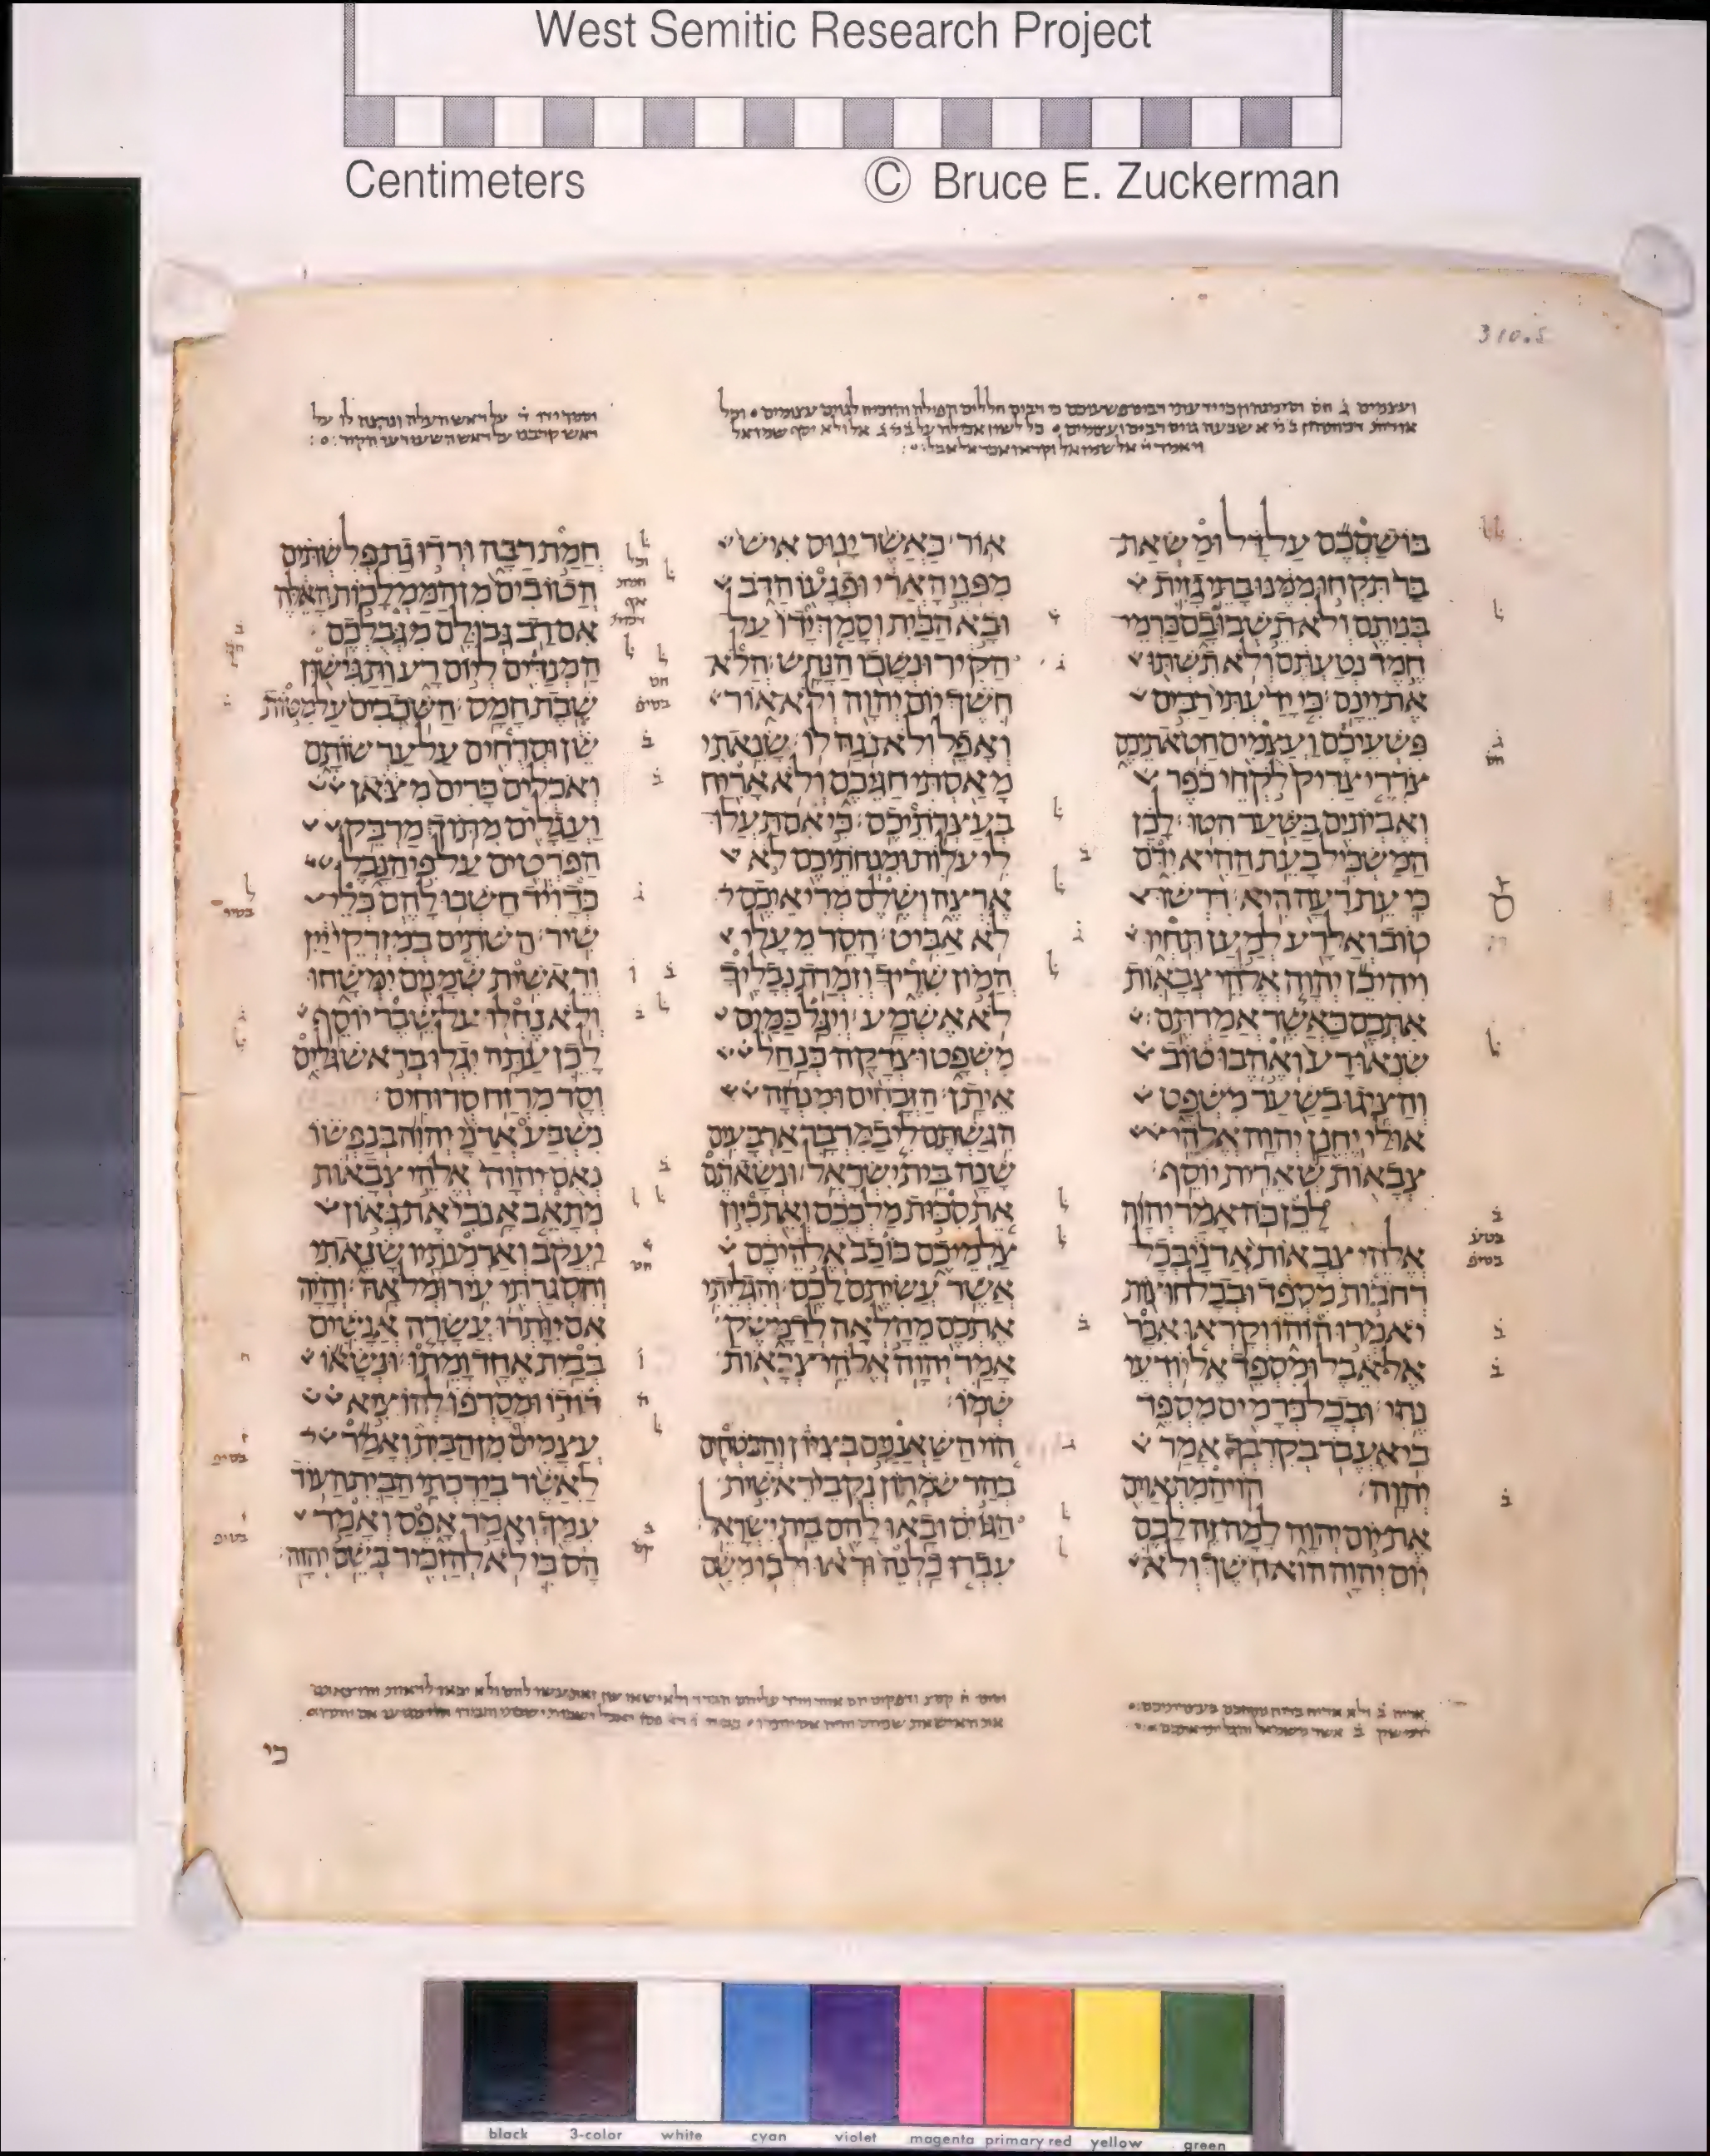 West Semitic Research Project
Centimeters © Bruce E. Zuckerman
310.5
ועצמים ג חס וסימנהון כי ידעתי רבים פשעיכם כי רבים חללים הפילה והוכיח לגוים עצומים וכל
ויאמר יי אל שמואל וקראו אכר אל אבל
וסמך ידו ד על ראש העלה ונרצה לו על
בושסכם על דל ומשאת
בר תקחו ממנו בתי גזית
בניתם ולא תשבו בם כרמי
חמד נטעתם ולא תשתו
את יינם׃ כי ידעתי רבים
פשעיכם ועצמים חטאתיכם
צררי צדיק לקחי כפר
ואביונים בשער הטו׃ לכן
המשכיל בעת ההיא ידם
כי עת רעה היא׃ דרשו
טוב ואל רע למען תחיו
ויהי כן יהוה אלהי צבאות
אתכם כאשר אמרתם׃
שנאו רע ואהבו טוב
והציגו בשער משפט
אולי יחנן יהוה אלהי
צבאות שארית יוסף׃
לכן כה אמר יהוה
אלהי צבאות אדני בכל
רחבות מספד ובכל חוצות
יאמרו הו הו וקראו אכר
אל אבל ומספד אל יודעי
נהי׃ ובכל כרמים מספד
כי אעבר בקרבך אמר
יהוה׃ הוי המתאוים
את יום יהוה למה זה לכם
יום יהוה הוא חשך ולא
אור׃ כאשר ינוס איש
מפני הארי ופגעו הדב
ובא הבית וסמך ידו על
הקיר ונשכו הנחש׃ הלא
חשך יום יהוה ולא אור
ואפל ולא נגה לו׃ שנאתי
מאסתי חגיכם ולא אריח
בעצרתיכם׃ כי אם תעלו
לי עלות ומנחתיכם לא
ארצה ושלם מריאיכם
לא אביט׃ הסר מעלי
המון שריך וזמרת נבליך
לא אשמע׃ ויגל כמים
משפט וצדקה כנחל
איתן׃ הזבחים ומנחה
הגשתם לי במדבר ארבעים
שנה בית ישראל׃ ונשאתם
את סכות מלככם ואת כיון
צלמיכם כוכב אלהיכם
אשר עשיתם לכם׃ והגליתי
אתכם מהלאה לדמשק
אמר יהוה אלהי צבאות
שמו׃
הוי השאננים בציון והבטחים
בהר שמרון נקבי ראשית
הגוים ובאו להם בית ישראל׃
עברו כלנה וראו ולכו משם
חמת רבה ורדו גת פלשתים
הטובים מן הממלכות האלה
אם רב גבולם מגבלכם׃
המנדים ליום רע ותגישון
שבת חמס׃ השכבים על מטות
שן וסרחים על ערשותם
ואכלים כרים מצאן
ועגלים מתוך מרבק׃
הפרטים על פי הנבל
כדויד חשבו להם כלי
שיר׃ השתים במזרקי יין
וראשית שמנים ימשחו
ולא נחלו על שבר יוסף׃
לכן עתה יגלו בראש גלים
וסר מרזח סרוחים׃
נשבע אדני יהוה בנפשו
נאם יהוה אלהי צבאות
מתאב אנכי את גאון
יעקב וארמנתיו שנאתי
והסגרתי עיר ומלאה׃ והיה
אם יותרו עשרה אנשים
בבית אחד ומתו׃ ונשאו
דודו ומסרפו להוציא
עצמים מן הבית ואמר
לאשר בירכתי הבית העוד
עמך ואמר אפס ואמר
הס כי לא להזכיר בשם יהוה׃
כי
black 3-color white cyan violet magenta primary red yellow green